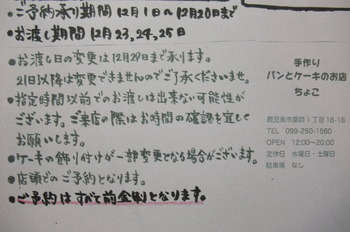 ・ご予約承り期間 12月1日〜12月20日まで
・お渡し期間 12月23,24,25日
●お渡し日の変更は12月29日まで承ります。
21日以降は変更できませんのでご了承くださいませ。
●指定時間以前でのお渡しは出来ない可能性が
ございます。ご来店の際はお時間の確認を宜しく
お願いします。
●ケーキの飾り付けが一部変更となる場合がございます。
●店頭でのご予約となります。
●ご予約はすべて前金制となります。
手作り
パンとケーキのお店
ちょこ
鹿児島市薬師1丁目18-18
TEL 099-250-1560
OPEN 12:00〜20:00
定休日 水曜日・土曜日
駐車場 なし